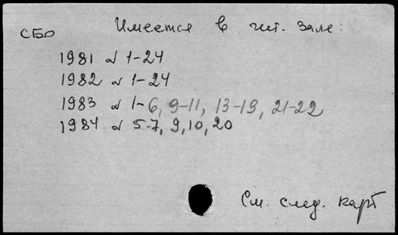 СБО Имеется в чит. зале:
1981 № 1-24
1982 № 1-24
1983 № 1-6, 9-11, 13-19, 21-22
1984 № 5-7, 9, 10, 20
См. след. карт